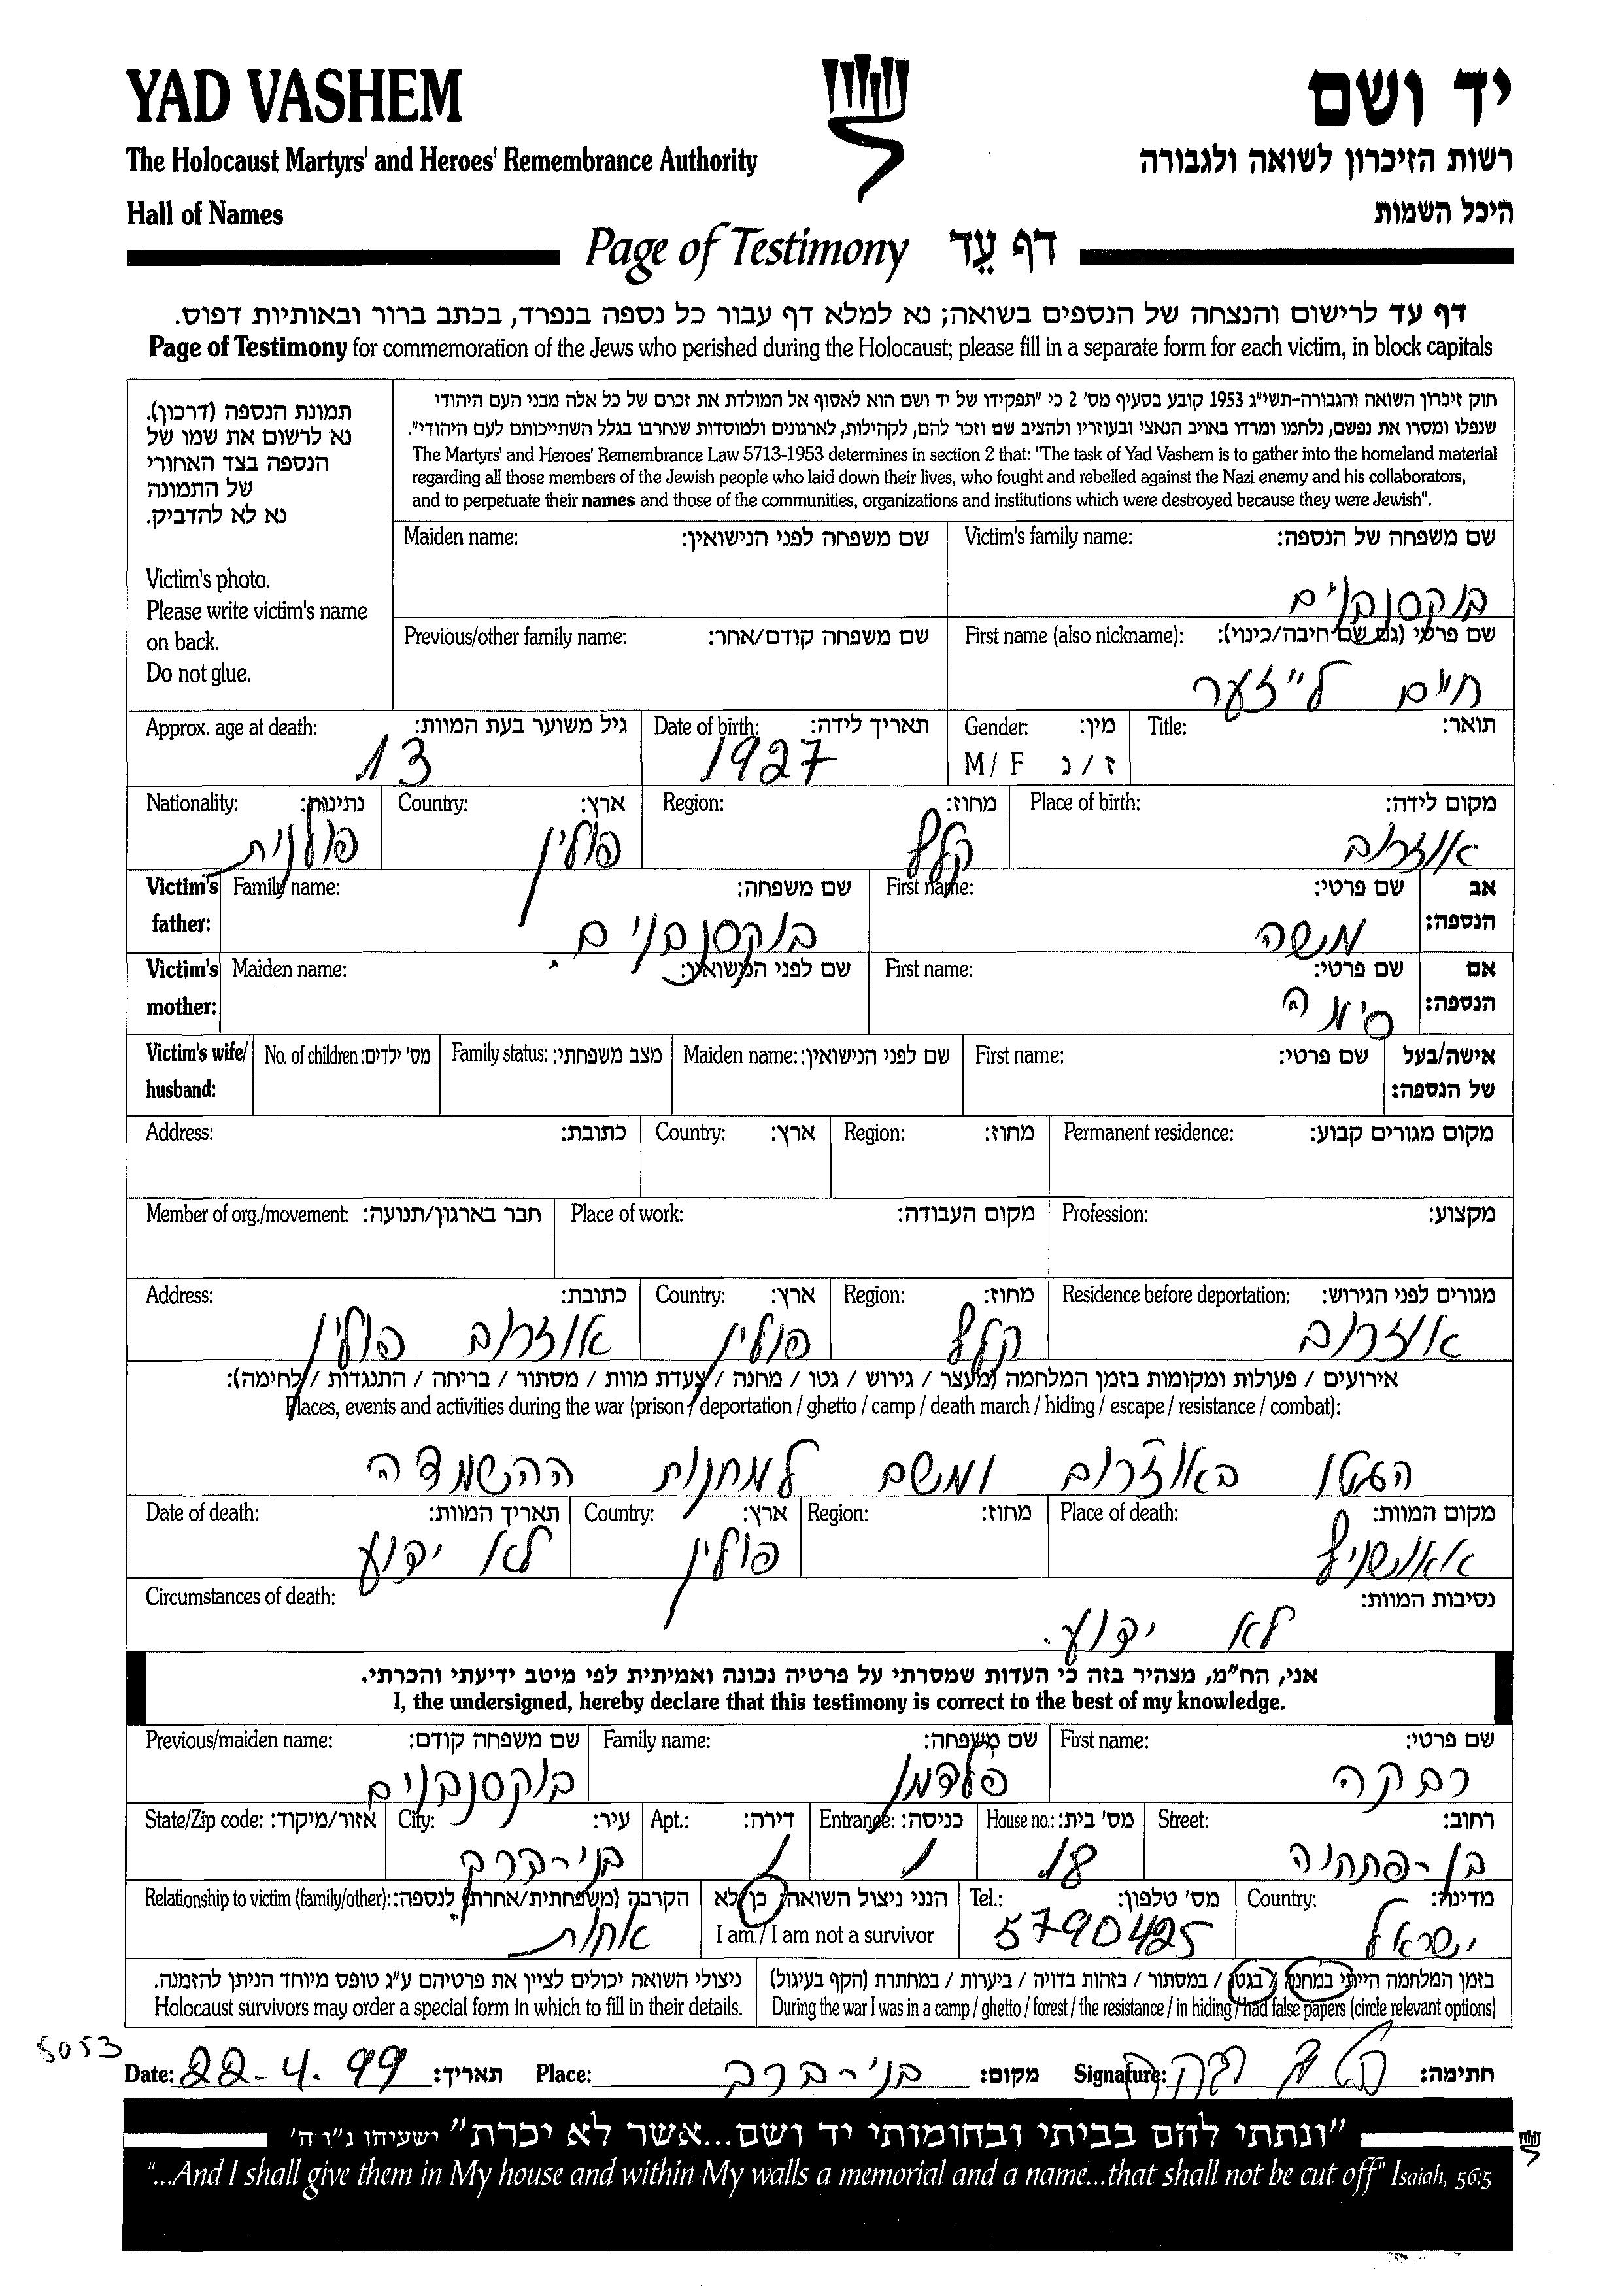 YAD VASHEM
יד ושם
The Holocaust Martyrs' and Heroes' Remembrance Authority
רשות הזיכרון לשואה ולגבורה
Hall of Names
היכל השמות
Page of Testimony דף עֵד
דף עד לרישום והנצחה של הנספים בשואה; נא למלא דף עבור כל נספה בנפרד, בכתב ברור ובאותיות דפוס.
Page of Testimony for commemoration of the Jews who perished during the Holocaust; please fill in a separate form for each victim, in block capitals
תמונת הנספה (דרכון).
נא לרשום את שמו של
הנספה בצד האחורי
של התמונה
נא לא להדביק.
Victim's photo.
Please write victim's name
on back.
Do not glue.
חוק זיכרון השואה והגבורה-תשי"ג 1953 קובע בסעיף מס' 2 כי "תפקידו של יד ושם הוא לאסוף אל המולדת את זכרם של כל אלה מבני העם היהודי
שנפלו ומסרו את נפשם, נלחמו ומרדו באויב הנאצי ובעוזריו ולהציב שם וזכר להם, לקהילות, לארגונים ולמוסדות שנחרבו בגלל השתייכותם לעם היהודי".
The Martyrs' and Heroes' Remembrance Law 5713-1953 determines in section 2 that: "The task of Yad Vashem is to gather into the homeland material
regarding all those members of the Jewish people who laid down their lives, who fought and rebelled against the Nazi enemy and his collaborators,
and to perpetuate their names and those of the communities, organizations and institutions which were destroyed because they were Jewish".
Victim's family name: שם משפחה של הנספה:
בוקסנבוים
Maiden name: שם משפחה לפני הנישואין:
First name (also nickname): שם פרטי (גם שם חיבה/כינוי):
חיים ל"זער
Previous/other family name: שם משפחה קודם/אחר:
Title: תואר:
Gender: מין:
M / F ז / נ
Date of birth: תאריך לידה:
1927
Approx. age at death: גיל משוער בעת המוות:
13
Place of birth: מקום לידה:
אוזרוב
Region: מחוז:
קלץ
Country: ארץ:
פולין
Nationality: נתינות:
פולנית
Victim's father: אב הנספה:
First name: שם פרטי:
משה
Family name: שם משפחה:
בוקסנבוים.
Victim's mother: אם הנספה:
First name: שם פרטי:
סימה
Maiden name: שם לפני הנישואין:
Victim's wife/ husband: אישה/בעל של הנספה:
First name: שם פרטי:
Maiden name: שם לפני הנישואין:
Family status: מצב משפחתי:
No. of children: מס' ילדים:
Permanent residence: מקום מגורים קבוע:
Region: מחוז:
Country: ארץ:
Address: כתובת:
Profession: מקצוע:
Place of work: מקום העבודה:
Member of org./movement: חבר בארגון/תנועה:
Residence before deportation: מגורים לפני הגירוש:
אוזרוב
Region: מחוז:
קלץ
Country: ארץ:
פולין
Address: כתובת:
אוזרוב פולין
אירועים / פעולות ומקומות בזמן המלחמה (מעצר / גירוש / גטו / מחנה / צעדת מוות / מסתור / בריחה / התנגדות / לחימה):
Places, events and activities during the war (prison / deportation / ghetto / camp / death march / hiding / escape / resistance / combat):
הגטו באוזרוב ומשם למחנות ההשמדה
Place of death: מקום המוות:
אאושויץ
Region: מחוז:
Country: ארץ:
פולין
Date of death: תאריך המוות:
לא ידוע
Circumstances of death: נסיבות המוות:
לא ידוע.
אני, הח"מ, מצהיר בזה כי העדות שמסרתי על פרטיה נכונה ואמיתית לפי מיטב ידיעתי והכרתי.
I, the undersigned, hereby declare that this testimony is correct to the best of my knowledge.
First name: שם פרטי:
רבקה
Family name: שם משפחה:
פלדמן
Previous/maiden name: שם משפחה קודם:
בוקסנבוים
Street: רחוב:
בן-פתחיה
House no.: מס' בית:
18
Entrance: כניסה:
1
Apt.: דירה:
1
City: עיר:
בני-ברק
State/Zip code: אזור/מיקוד:
Country: מדינה:
ישראל
Tel.: מס' טלפון:
5790425
הנני ניצול השואה: כן/לא
I am / I am not a survivor
Relationship to victim (family/other): הקרבה (משפחתית/אחרת) לנספה:
אחות
בזמן המלחמה הייתי במחנה / בגטו / במסתור / בזהות בדויה / ביערות / במחתרת (הקף בעיגול)
During the war I was in a camp / ghetto / forest / the resistance / in hiding / had false papers (circle relevant options)
ניצולי השואה יכולים לציין את פרטיהם ע"ג טופס מיוחד הניתן להזמנה.
Holocaust survivors may order a special form in which to fill in their details.
5053
Date: 22-4.99 תאריך:
Place: בני-ברק מקום:
Signature: חתימה:
"ונתתי להם בביתי ובחומותי יד ושם...אשר לא יכרת" ישעיהו נ"ו ה'
"...And I shall give them in My house and within My walls a memorial and a name...that shall not be cut off" Isaiah, 56:5